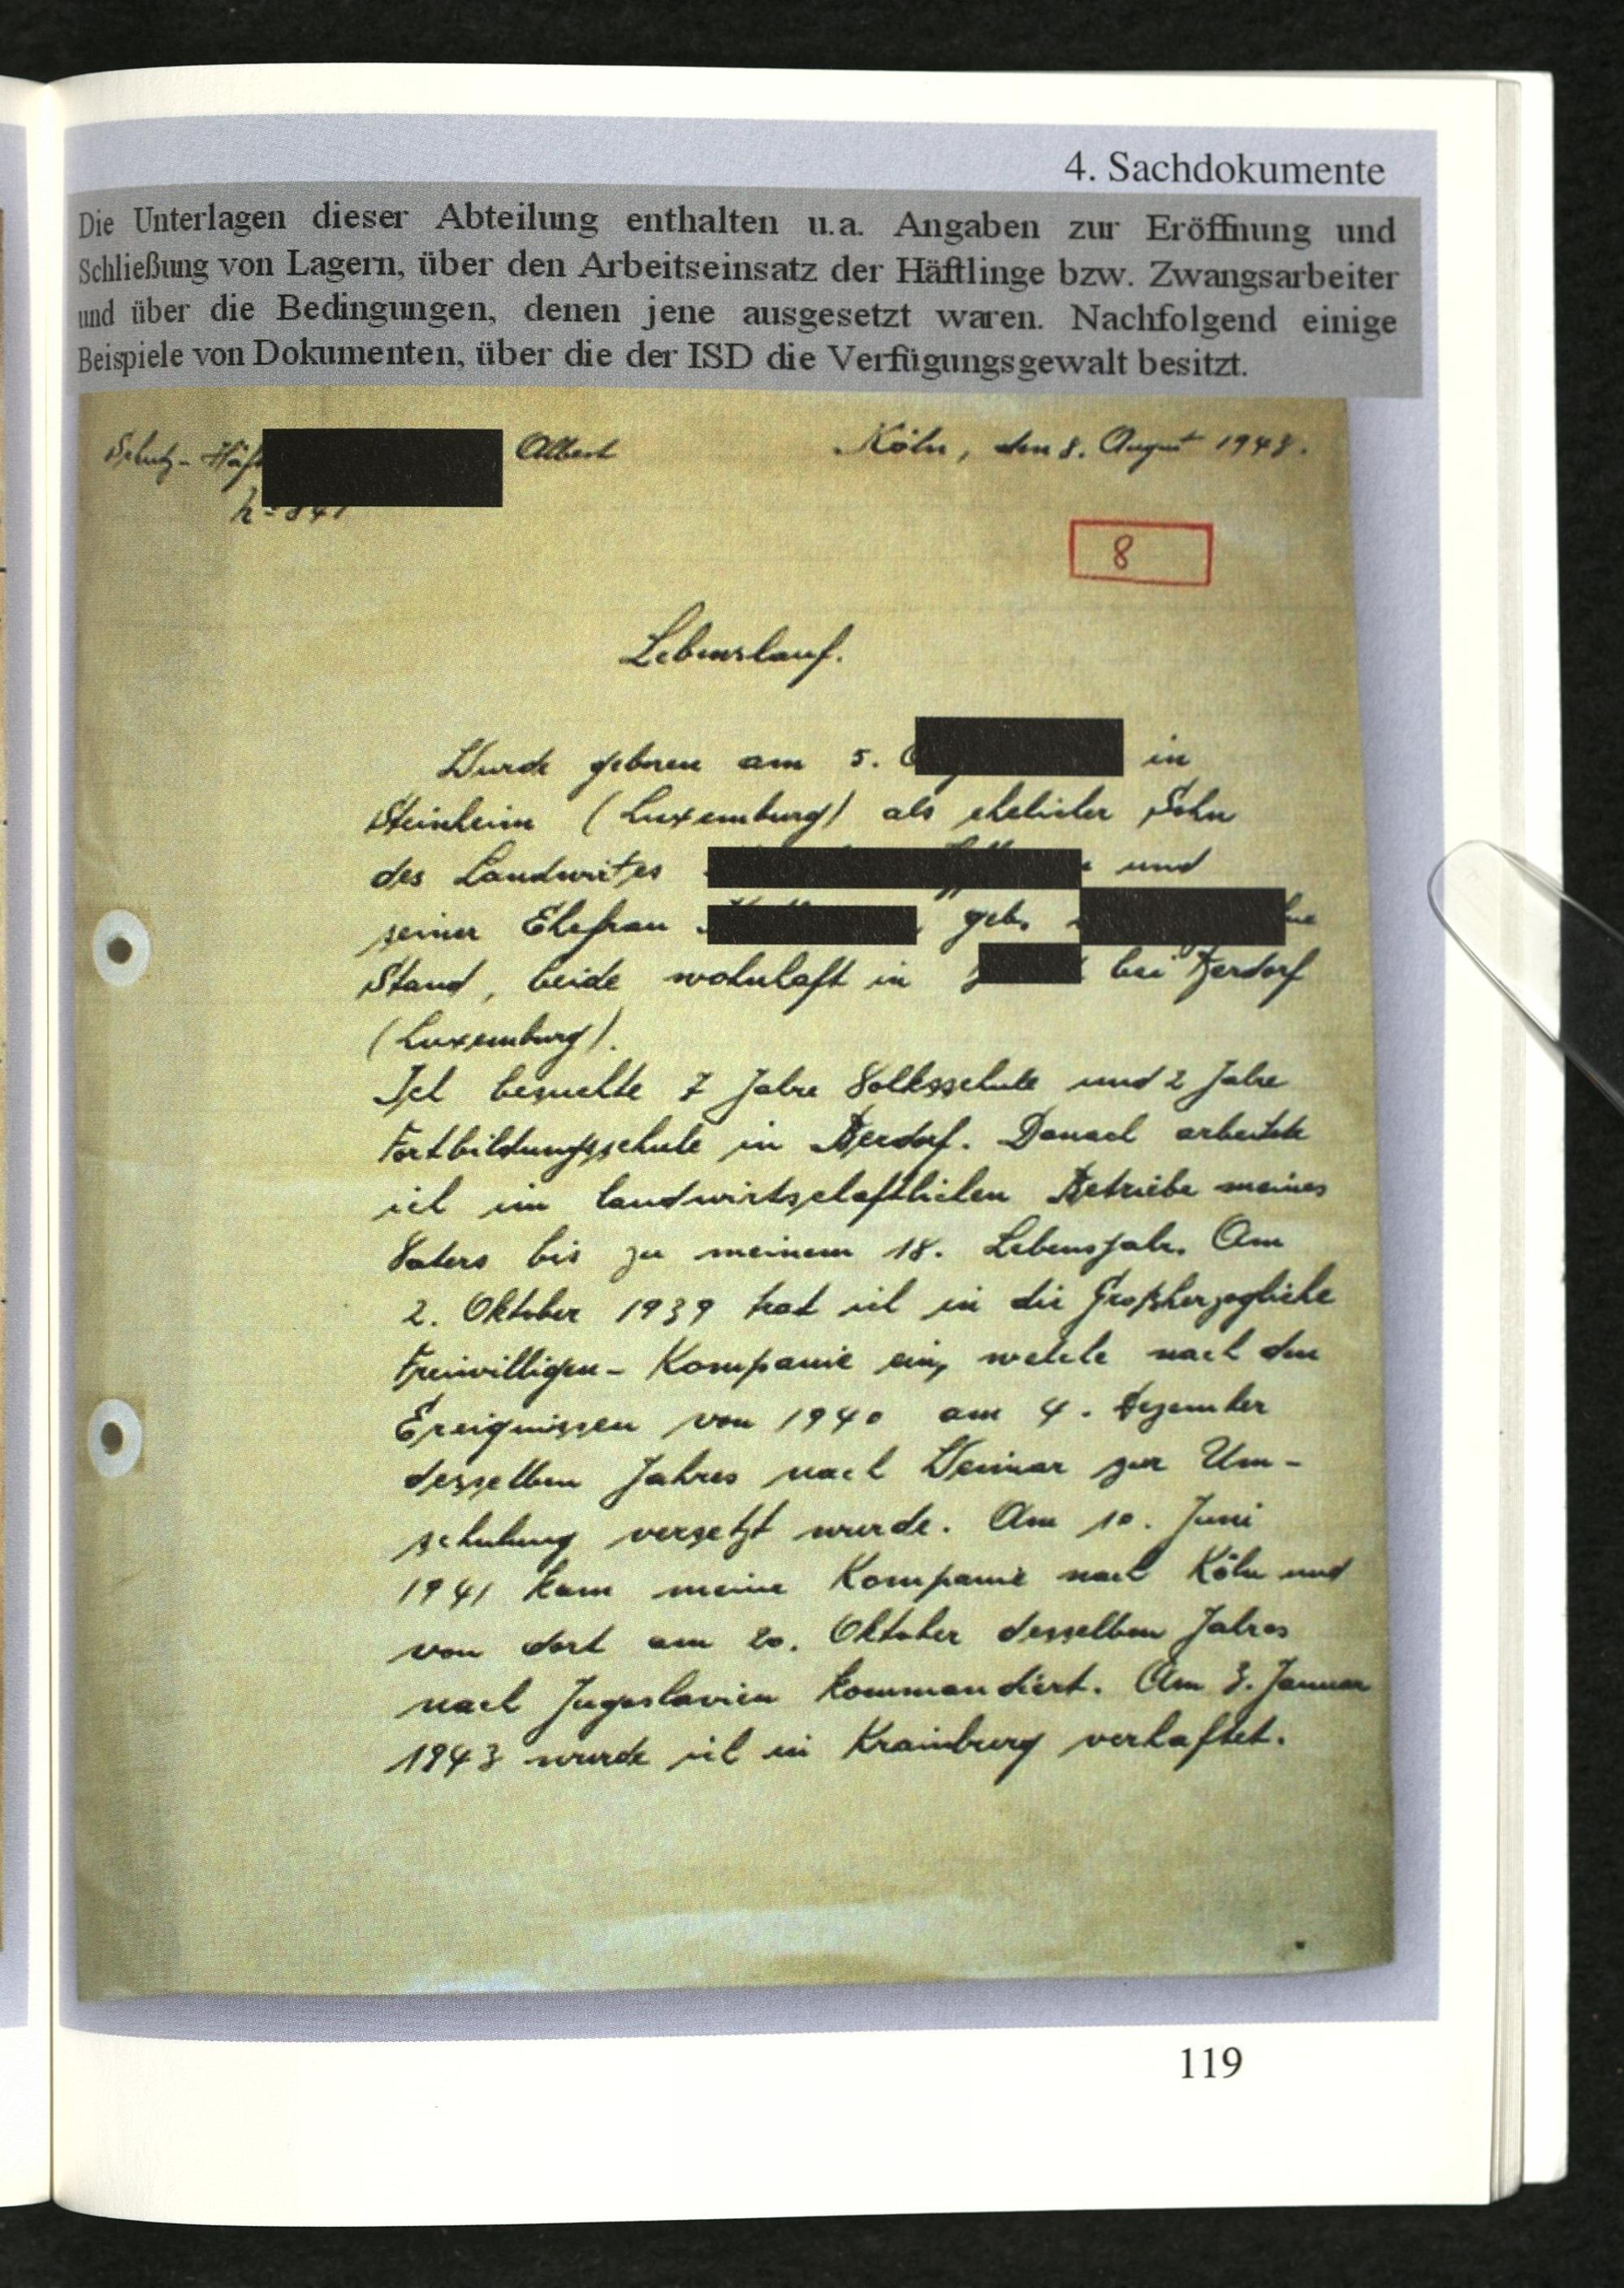 4. Sachdokumente
Die Unterlagen dieser Abteilung enthalten u.a. Angaben zur Eröffnung und
Schließung von Lagern, über den Arbeitseinsatz der Häftlinge bzw. Zwangsarbeiter
und über die Bedingungen, denen jene ausgesetzt waren. Nachfolgend einige
Beispiele von Dokumenten, über die der ISD die Verfügungsgewalt besitzt.
Schutz-Häf Albert Köln, den 8. August 1943.
8
Lebenslauf.
Wurde geboren am 5. in
Steinheim (Luxemburg) als ehelicher Sohn
des Landwirtes und
seiner Ehefrau geb.
Stand, beide wohnhaft in bei Berdorf
(Luxemburg).
Ich besuchte 7 Jahre Volksschule und 2 Jahre
Fortbildungsschule in Berdorf. Danach arbeitete
ich im landwirtschaftlichen Betriebe meines
Vaters bis zu meinem 18. Lebensjahr. Am
2. Oktober 1939 trat ich in die Großherzogliche
Freiwilligen-Kompanie ein, welche nach den
Ereignissen von 1940 am 4. Dezember
desselben Jahres nach Weimar zur Um-
schulung versetzt wurde. Am 10. Juni
1941 kam meine Kompanie nach Köln und
von dort am 20. Oktober desselben Jahres
nach Jugoslavien kommandiert. Am 3. Januar
1943 wurde ich in Krainburg verhaftet.
119